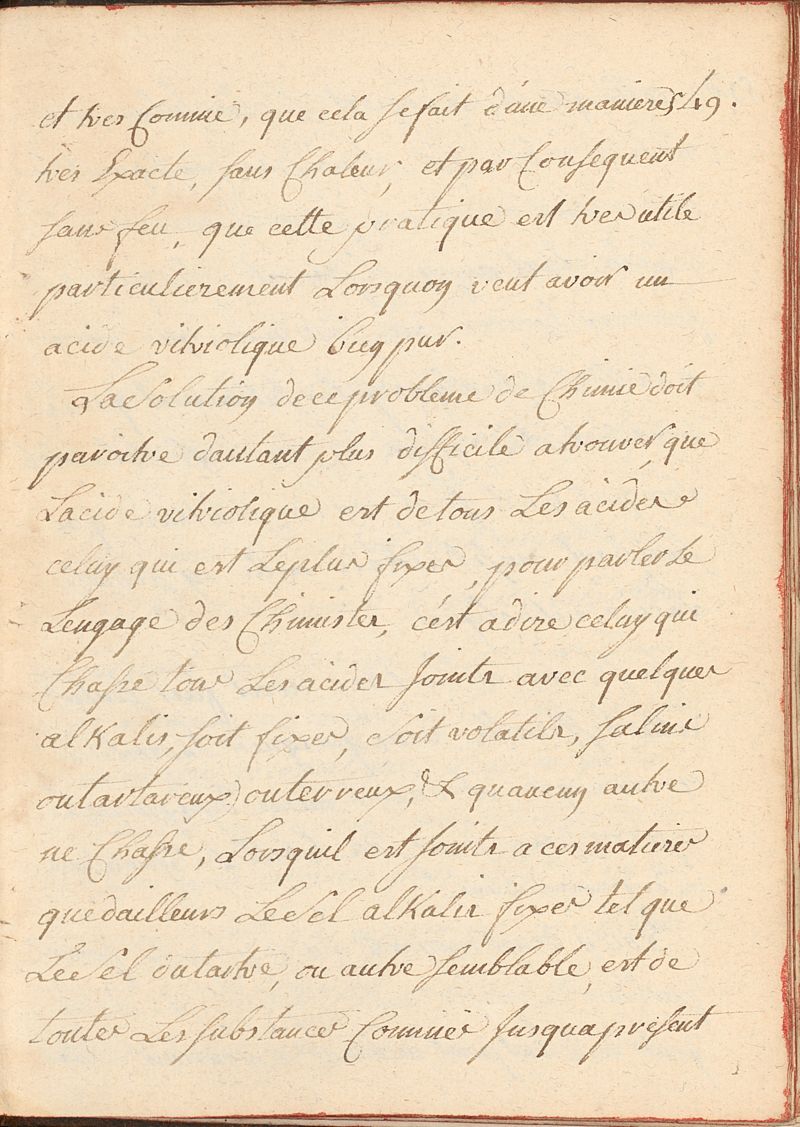 et tres Connüe, que cela se fait d'une maniere 549.
tres Exacte, sans Chaleur, et par Consequent
sans feu, que cette pratique est tres utile
particulierement Lorsquon veut avoir un
acide vitriolique bien pur.
La Solution de ce probleme de Chimie doit
paroitre dautant plus difficile a trouver, que
Lacide vitriolique est de tous Les acides
celuy qui est Le plus fixe, pour parler Le
Lengage des Chimistes, c'est a dire celuy qui
Chasse tous Les acides Joints avec quelques
alKalis, soit fixes, soit volatils, salins
ou tartareux, ou terreux, & quaucun autre
ne Chasse, Lorsquil est Joints a ces matieres
que dailleurs Le Sel alKalis fixe tel que
Le Sel du tartre, ou autre semblable, est de
toutes Les substances Connües Jusqua present